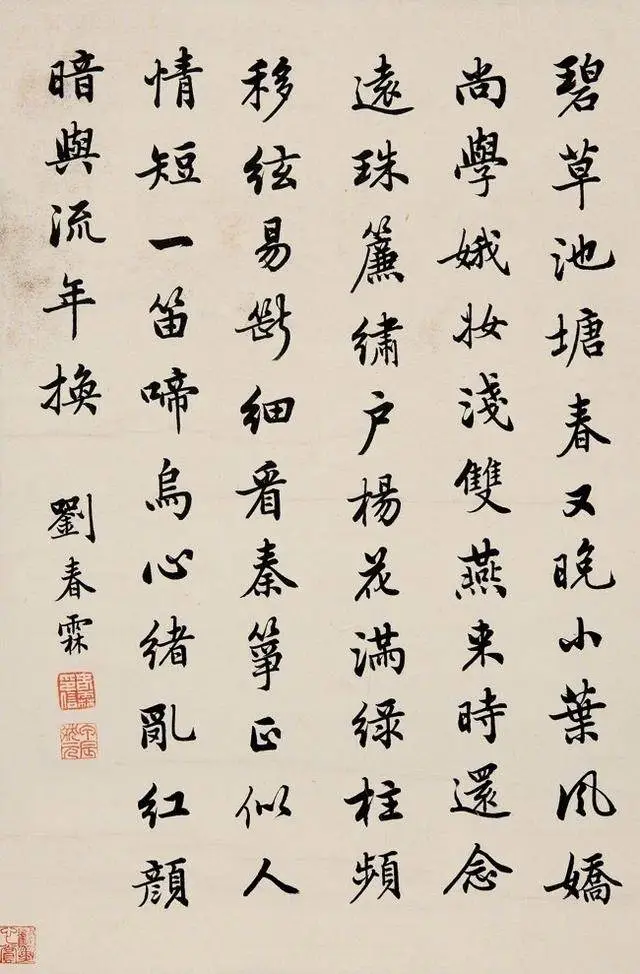 碧草池塘春又晚小葉風嬌
尚學娥妝淺雙燕来時還念
遠珠簾繡户楊花滿绿柱頻
移絃易斷细看秦箏正似人
情短一笛啼烏心绪亂红顔
暗與流年換
劉春霖